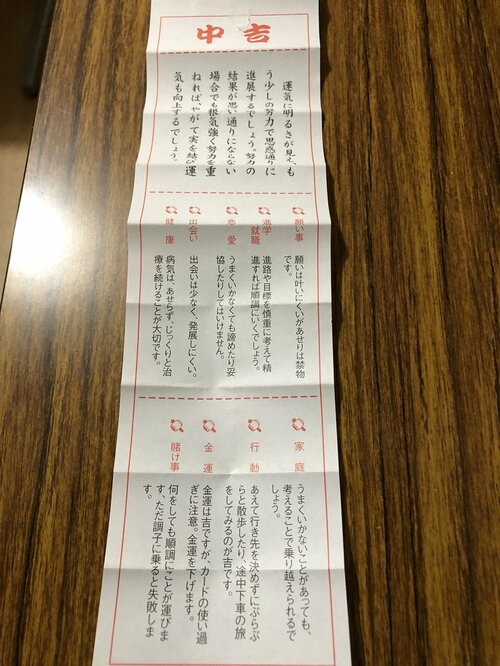 中吉
運気に明るさが見え、も
う少しの努力で思惑通りに
進展するでしょう。努力の
結果が思い通りにならない
場合でも根気強く努力を重
ねれば、やがて実を結び運
気も向上するでしょう。
願い事
願いは叶いにくいがあせりは禁物
です。
進学
就職
進路や目標を慎重に考えて精
進すれば順調にいくでしょう。
恋愛
うまくいかなくても諦めたり妥
協したりしてはいけません。
出会い
出会いは少なく、発展しにくい。
健康
病気は、あせらず、じっくりと治
療を続けることが大切です。
家庭
うまくいかないことがあっても、
考えることで乗り越えられるで
しょう。
行動
あえて行き先を決めずにぶらぶ
らと散歩したり、途中下車の旅
をしてみるのが吉です。
金運
金運は吉ですが、カードの使い過
ぎに注意。金運を下げます。
賭け事
何をしても順調にことが運びま
す。ただ調子に乗ると失敗しま
す。